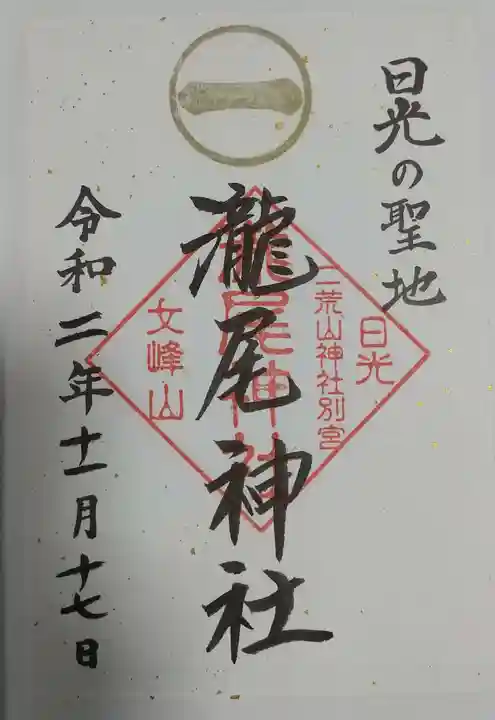 日光の聖地
一
瀧尾神社
日光
二荒山神社別宮
瀧尾神社
女峰山
令和二年十一月十七日